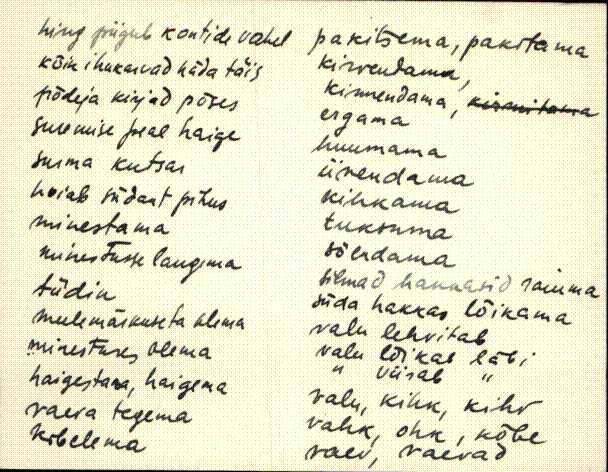 hing püguls kontide vahel
kõik ihukarvad häda täis
põdeja kirjad põses
suremise peal haige
surma kutsar
hoiab südant pihus
minestama
minestusse langema
tüdin
meelemärkuseta olema
minestuses olema
haigestama, haigema
vaeva tegema
kobelema
pakitsema, pakitama
kirvendama,
kinnendama,
ergama
huumama
üirendama
kihkama
tuksuma
sõerdama
silmad hakkasid rainma
süda hakkas lõikama
valu lehvitab
valu lõikab läbi
" viisab "
valu, kihk, kihv
vahk, ohk, kõbe
vaev, vaevad